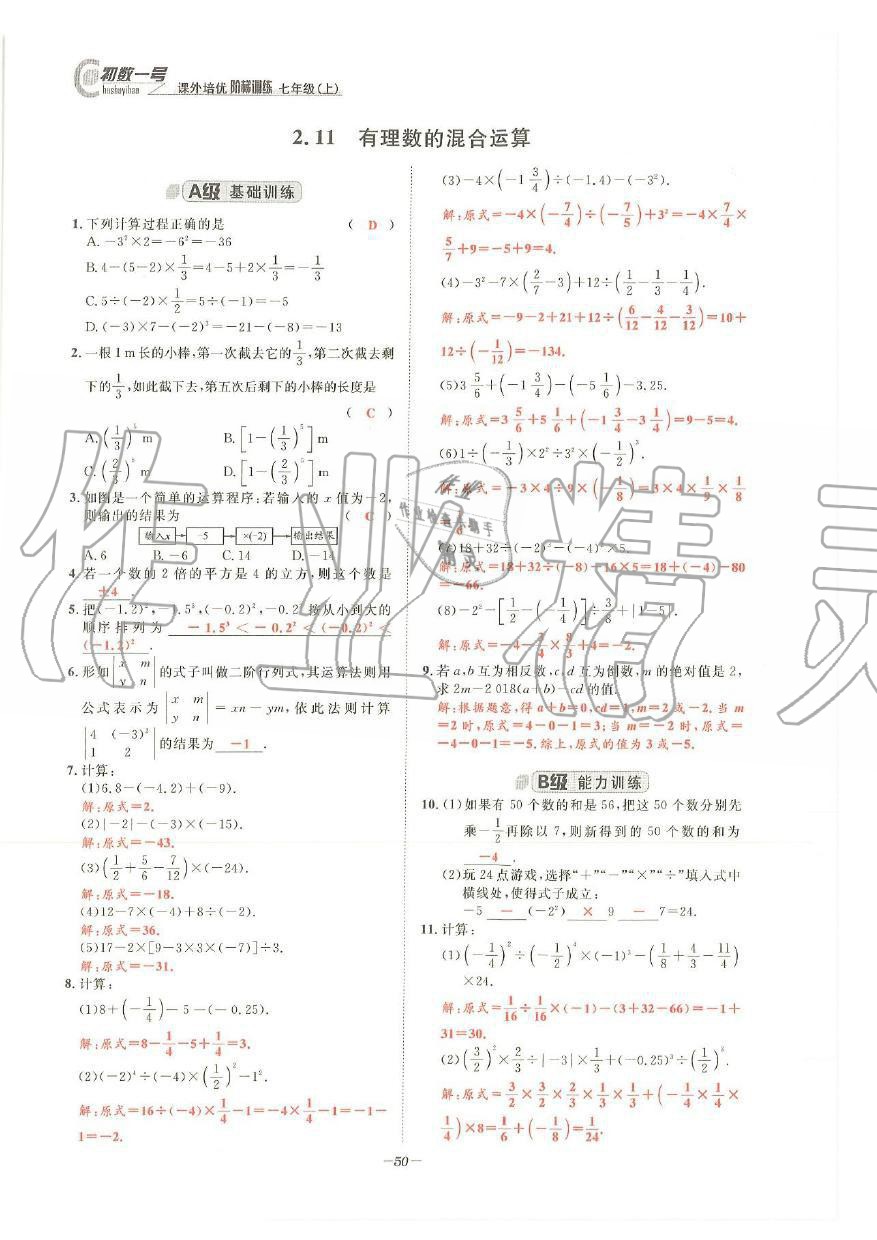 初数一号
Chushuyihao
课外培优 阶梯训练 七年级(上)
2.11 有理数的混合运算
A级 基础训练
1. 下列计算过程正确的是 ( D )
A. −3²×2=−6²=−36
B. 4−(5−2)×1/3=4−5+2×1/3=−1/3
C. 5÷(−2)×1/2=5÷(−1)=−5
D. (−3)×7−(−2)³=−21−(−8)=−13
2. 一根1 m长的小棒,第一次截去它的1/3,第二次截去剩
下的1/3,如此截下去,第五次后剩下的小棒的长度是
( C )
A. (1/3)⁵ m B. [1−(1/3)⁵] m
C. (2/3)⁵ m D. [1−(2/3)⁵] m
3. 如图是一个简单的运算程序:若输入的x值为−2,
则输出的结果为 ( C )
输入x → −5 → ×(−2) → 输出结果
A. 6 B. −6 C. 14 D. −14
4. 若一个数的2倍的平方是4的立方,则这个数是
±4 .
5. 把(−1.2)²,−1.5³,(−0.2)²,−0.2²按从小到大的
顺序排列为 −1.5³<−0.2²<(−0.2)²<
(−1.2)² .
6. 形如|x m; y n|的式子叫做二阶行列式,其运算法则用
公式表示为|x m; y n|=xn−ym,依此法则计算
|4 (−3)²; 1 2|的结果为 −1 .
7. 计算:
(1)6.8−(−4.2)+(−9).
解:原式=2.
(2)|−2|−(−3)×(−15).
解:原式=−43.
(3)(1/2+5/6−7/12)×(−24).
解:原式=−18.
(4)12−7×(−4)+8÷(−2).
解:原式=36.
(5)17−2×[9−3×3×(−7)]÷3.
解:原式=−31.
8. 计算:
(1)8+(−1/4)−5−(−0.25).
解:原式=8−1/4−5+1/4=3.
(2)(−2)⁴÷(−4)×(1/2)²−1².
解:原式=16÷(−4)×1/4−1=−4×1/4−1=−1−
1=−2.
(3)−4×(−1 3/4)÷(−1.4)−(−3²).
解:原式=−4×(−7/4)÷(−7/5)+3²=−4×7/4×
5/7+9=−5+9=4.
(4)−3²−7×(2/7−3)+12÷(1/2−1/3−1/4).
解:原式=−9−2+21+12÷(6/12−4/12−3/12)=10+
12÷(−1/12)=−134.
(5)3 5/6+(−1 3/4)−(−5 1/6)−3.25.
解:原式=3 5/6+5 1/6+(−1 3/4−3 1/4)=9−5=4.
(6)1÷(−1/3)×2²÷3²×(−1/2)³
解:原式=−3×4÷9×(−1/8)=3×4×1/9×1/8
(7)18+32÷(−2)³−(−4)²×5.
解:原式=18+32÷(−8)−16×5=18+(−4)−80
=−66.
(8)−2²−[1/2−(−1/4)]÷3/8+|1−5|.
9. 若a,b互为相反数,c,d互为倒数,m的绝对值是2,
求2m−2 018(a+b)−cd的值.
解:根据题意,得a+b=0,cd=1,m=2或−2.当m
=2时,原式=4−0−1=3;当m=−2时,原式=
−4−0−1=−5.综上,原式的值为3或−5.
B级 能力训练
10. (1)如果有50个数的和是56,把这50个数分别先
乘−1/2再除以7,则新得到的50个数的和为
−4 .
(2)玩24点游戏,选择“+”“−”“×”“÷”填入式中
横线处,使得式子成立:
−5 − (−2²) × 9 − 7=24.
11. 计算:
(1)(−1/4)²÷(−1/2)⁴×(−1)³−(1/8+4/3−11/4)
×24.
解:原式=1/16÷1/16×(−1)−(3+32−66)=−1+
31=30.
(2)(3/2)²×2/3÷|−3|×1/3+(−0.25)³÷(1/2)³.
解:原式=3/2×3/2×2/3×1/3×1/3+(−1/4×1/4×
1/4)×8=1/6+(−1/8)=1/24.
−50−